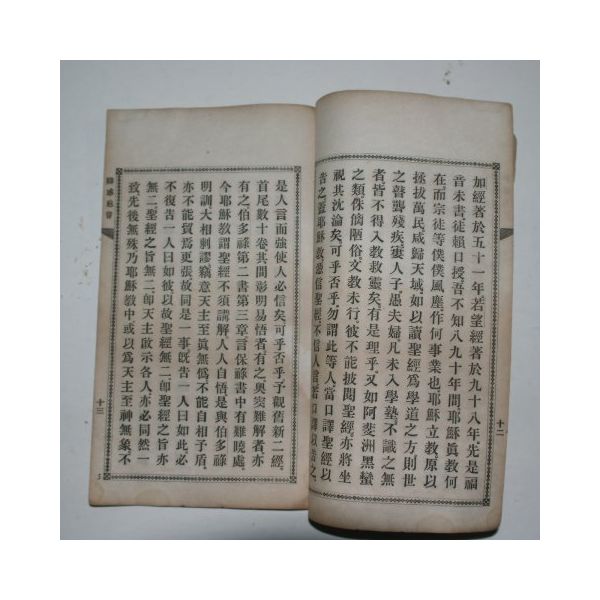 加經著於五十一年若望經著於九十八年先是福
音未書徒賴口授吾不知八九十年間耶穌眞教何
在而宗徒等僕僕風塵作何事業也耶穌立教原以
拯拔萬民咸歸天域如以讀聖經爲學道之方則世
之瞽聾殘疾寠人子愚夫婦凡未入學塾不識之無
者皆不得入教救靈矣有是理乎又如阿斐洲黑蠻
之類侏㒧陋俗文教未行彼不能披閱聖經亦將坐
視其沈淪矣可乎否乎勿謂此等人當口譯聖經以
告之蓋耶穌教憑信聖經不信人言若口譯以告之
十二
是人言而強使人必信矣可乎否乎予觀舊新二經
首尾數十卷其間彰明易悟者有之奧窔難解者亦
有之伯多祿第二書第三章言保祿書中有難曉處
今耶穌教謂聖經不須講解人人自悟是與伯多祿
明訓大相剌謬竊意天主至眞無僞不能自相矛盾
亦不能貿焉更張故同是一事既告一人曰如此必
不復告一人曰如彼以故聖經無二卽聖經之旨亦
無二聖經之旨無二卽天主啟示各人亦必同然一
致先後無殊乃耶穌教中或以爲天主至神無象不
十三